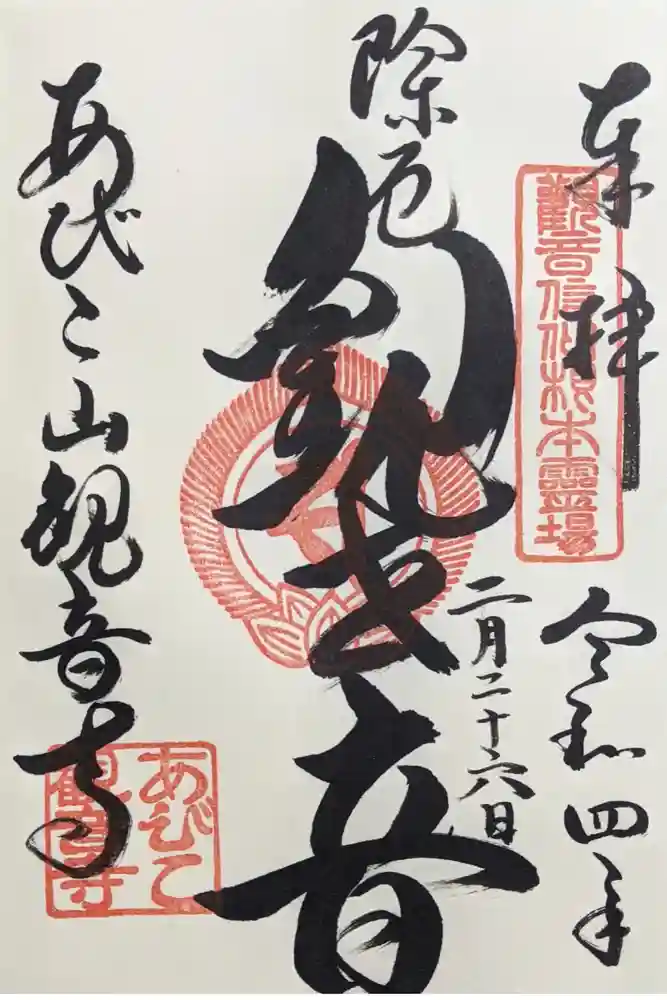 奉拝
觀音信仰根本靈場
令和四年
二月二十六日
除厄
観世音
あびこ山観音寺
あびこ
観音寺